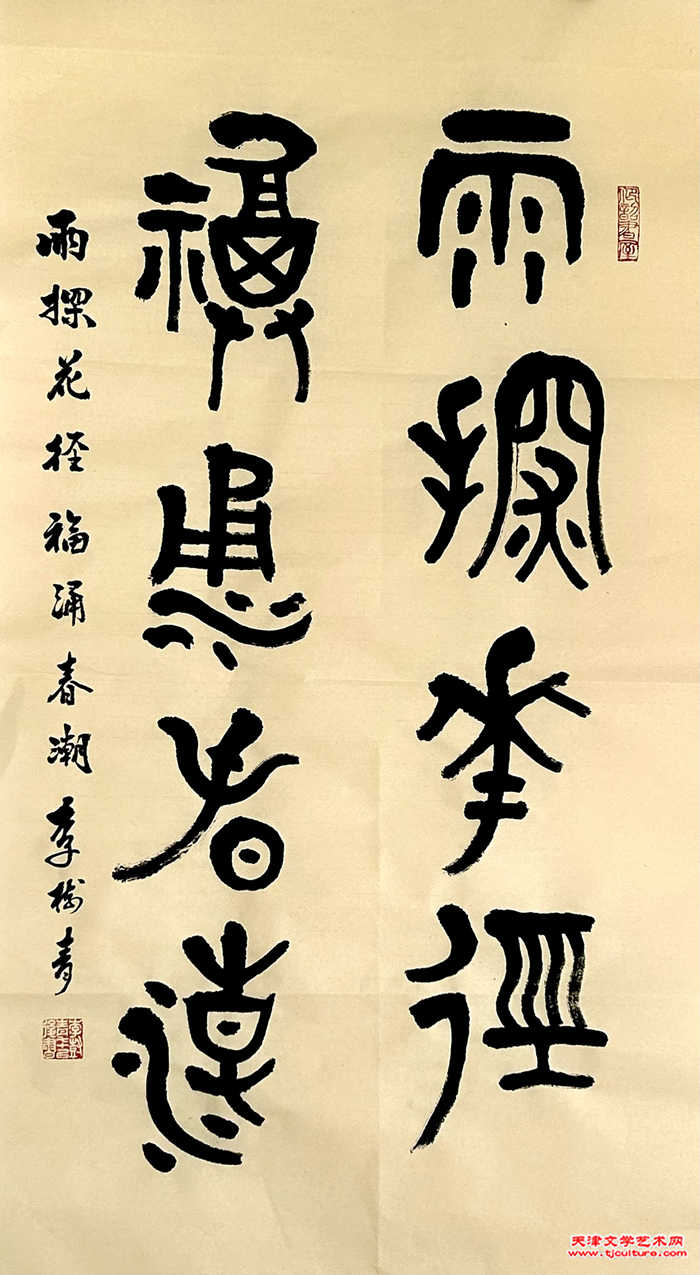 雨探花径
福涌春潮
雨探花径福涌春潮李树青
天津文学艺术网
www.tjculture.com